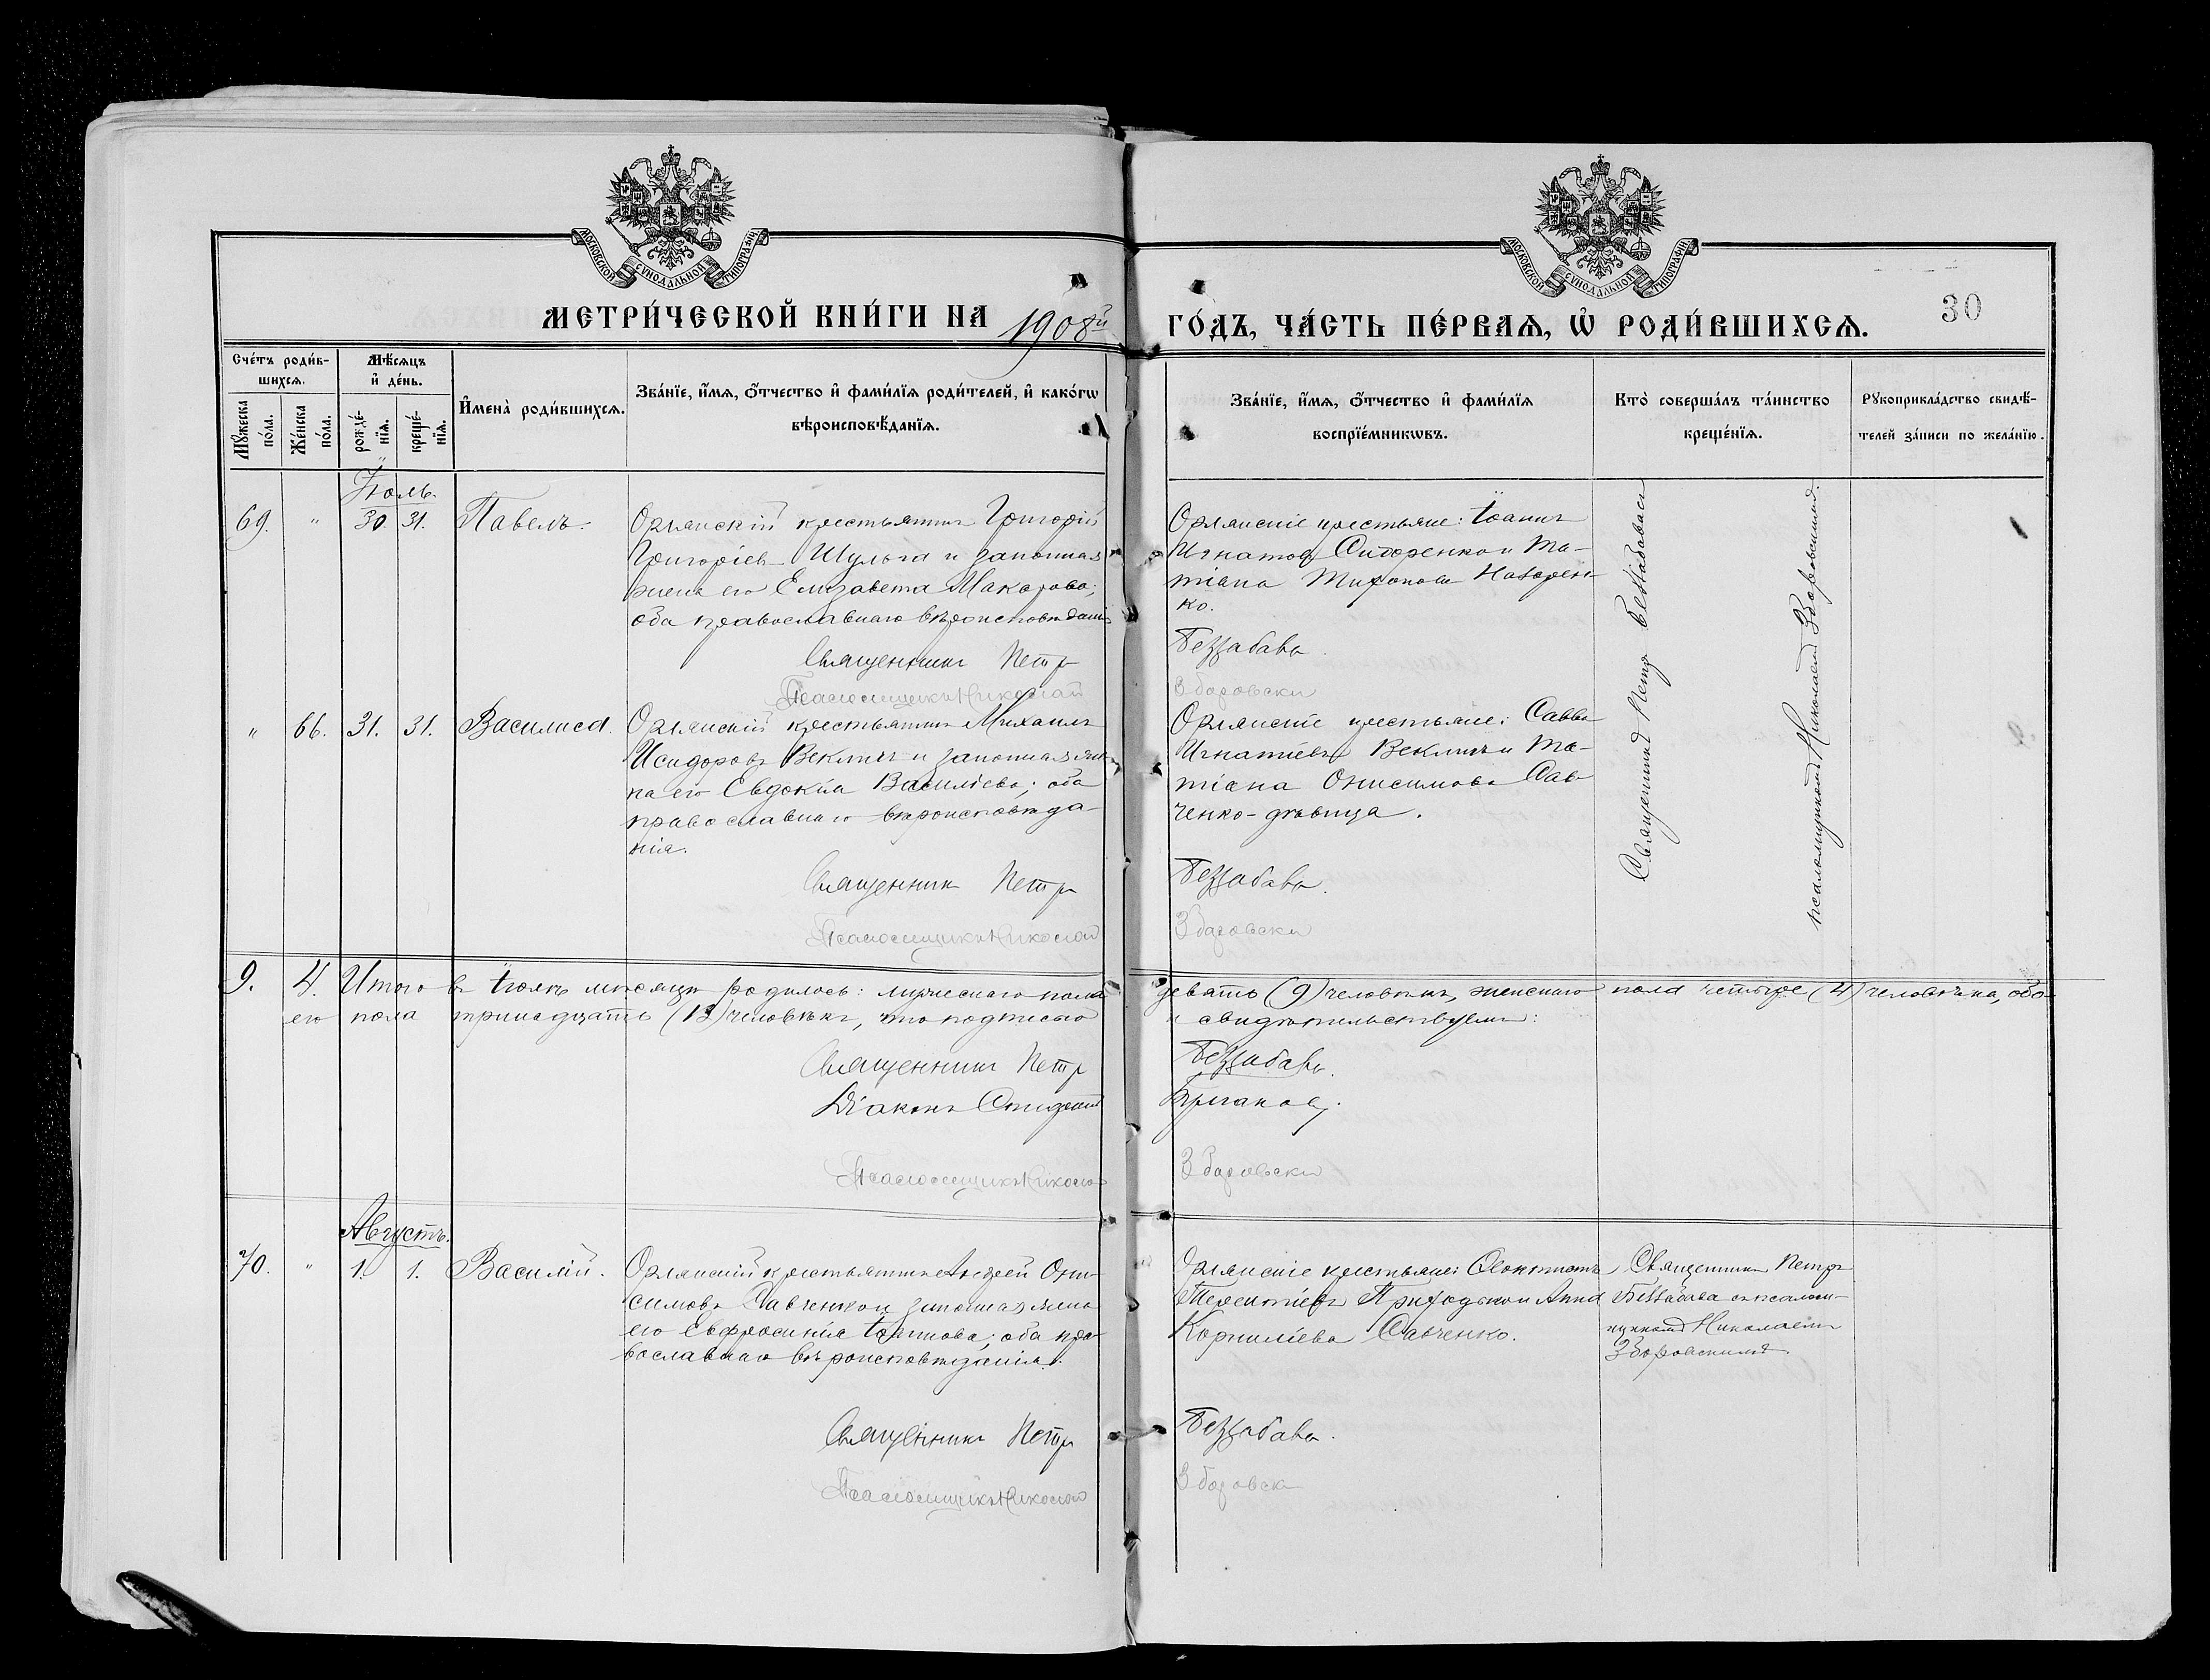 МОСКОВСКОЙ СУНОДАЛЬНОЙ ТИПОГРАФІИ
МОСКОВСКОЙ СУНОДАЛЬНОЙ ТИПОГРАФІИ
МЕТРИ́ЧЕСКОЙ КНИ́ГИ НА 1908й ГО́ДЪ, ЧА́СТЬ ПЕ́РВАѦ, Ѡ҆ РОДИ́ВШИХСѦ. 30
Сче́тъ роди́в-
шихсѧ.
Мꙋ́жеска по́ла.
Же́нска по́ла.
Мѣ́сѧцъ
и҆ де́нь.
рожде́-
нїѧ.
креще́-
нїѧ.
И҆мена̀ роди́вшихсѧ.
Зва́нїе, и҆́мѧ, ѻ҆́тчество и҆ фами́лїѧ роди́телей, и҆ како́гѡ
вѣроисповѣ́данїѧ.
Зва́нїе, и҆́мѧ, ѻ҆́тчество и҆ фами́лїѧ
воспрїе́мникѡвъ.
Кто̀ соверша́лъ та́инство
креще́нїѧ.
Рꙋкоприкла́дство свидѣ́-
телей за́писи по жела́нїю.
Іюль.
69. " 30. 31. Павелъ.
Орлянскій крестьянинъ Григорій
Григоріевъ Шульга и законная
жена его Елизавета Макарова;
оба православнаго вѣроисповѣданія
Священникъ Петръ
Псаломщикъ Николай
Орлянскіе крестьяне: Іоаннъ
Игнатов Сидоренко и Та-
тіана Назарен-
ко.
Беззабава.
Зборовски
Священникъ Петръ Беззабава съ
псаломщикомъ Николаемъ Зборовскимъ.
" 66. 31. 31. Василиса.
Орлянскій крестьянинъ Михаилъ
Исидоровъ Векличъ и законная же-
на его Евдокія Василіева; оба
православнаго вѣроисповѣда-
нія.
Священникъ Петръ
Псаломщикъ Николай
Орлянскіе крестьяне: Савва
Игнатіевъ Векличъ и Та-
тіана Онисимова Сав-
ченко-дѣвица.
Беззабава.
Зборовски
9. 4. Итого въ Іюлѣ мѣсяцѣ родилось: мужескаго пола девять (9) человѣкъ, женскаго пола четыре (4) человѣка, обо-
его пола тринадцать (13) человѣкъ, что подписью и свидѣтельствуемъ:
Священникъ Петръ Беззабава.
Діаконъ Спиридонъ
Псаломщикъ Николай Зборовски
Августъ.
70. " 1. 1. Василій.
Орлянскій крестьянинъ Андрей Они-
симовъ Савченко и законная жена
его Евфросинія Іоаннова; оба пра-
вославнаго вѣроисповѣданія.
Священникъ Петръ
Псаломщикъ Николай
Орлянскіе крестьяне: Ѳеоктистъ
Терентіевъ Приходько и Анна
Корниліева Савченко.
Беззабава.
Зборовск
Священникъ Петръ
Беззабава съ псалом-
щикомъ Николаемъ
Зборовскимъ